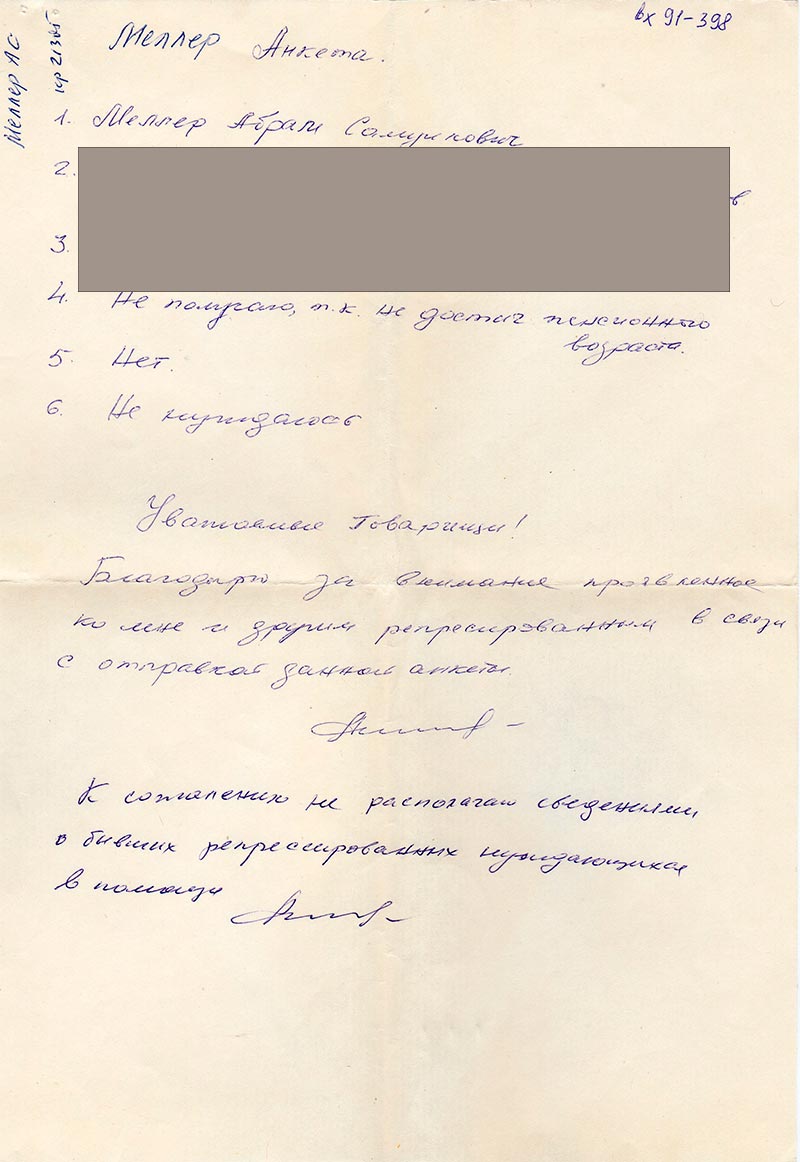 вх 91-398
Меллер АС
Меллер Анкета.
1. Меллер Абрам Самуилович
2.
в
3.
4. Не получаю, т.к. не достиг пенсионного
возраста.
5. Нет.
6. Не нуждаюсь
Уважаемые товарищи!
Благодарю за внимание проявленное
ко мне и другим репресированным в связи
с отправкой данной анкеты.
К сожалению не располагаю сведениями
о бывших репрессированных нуждающихся
в помощи